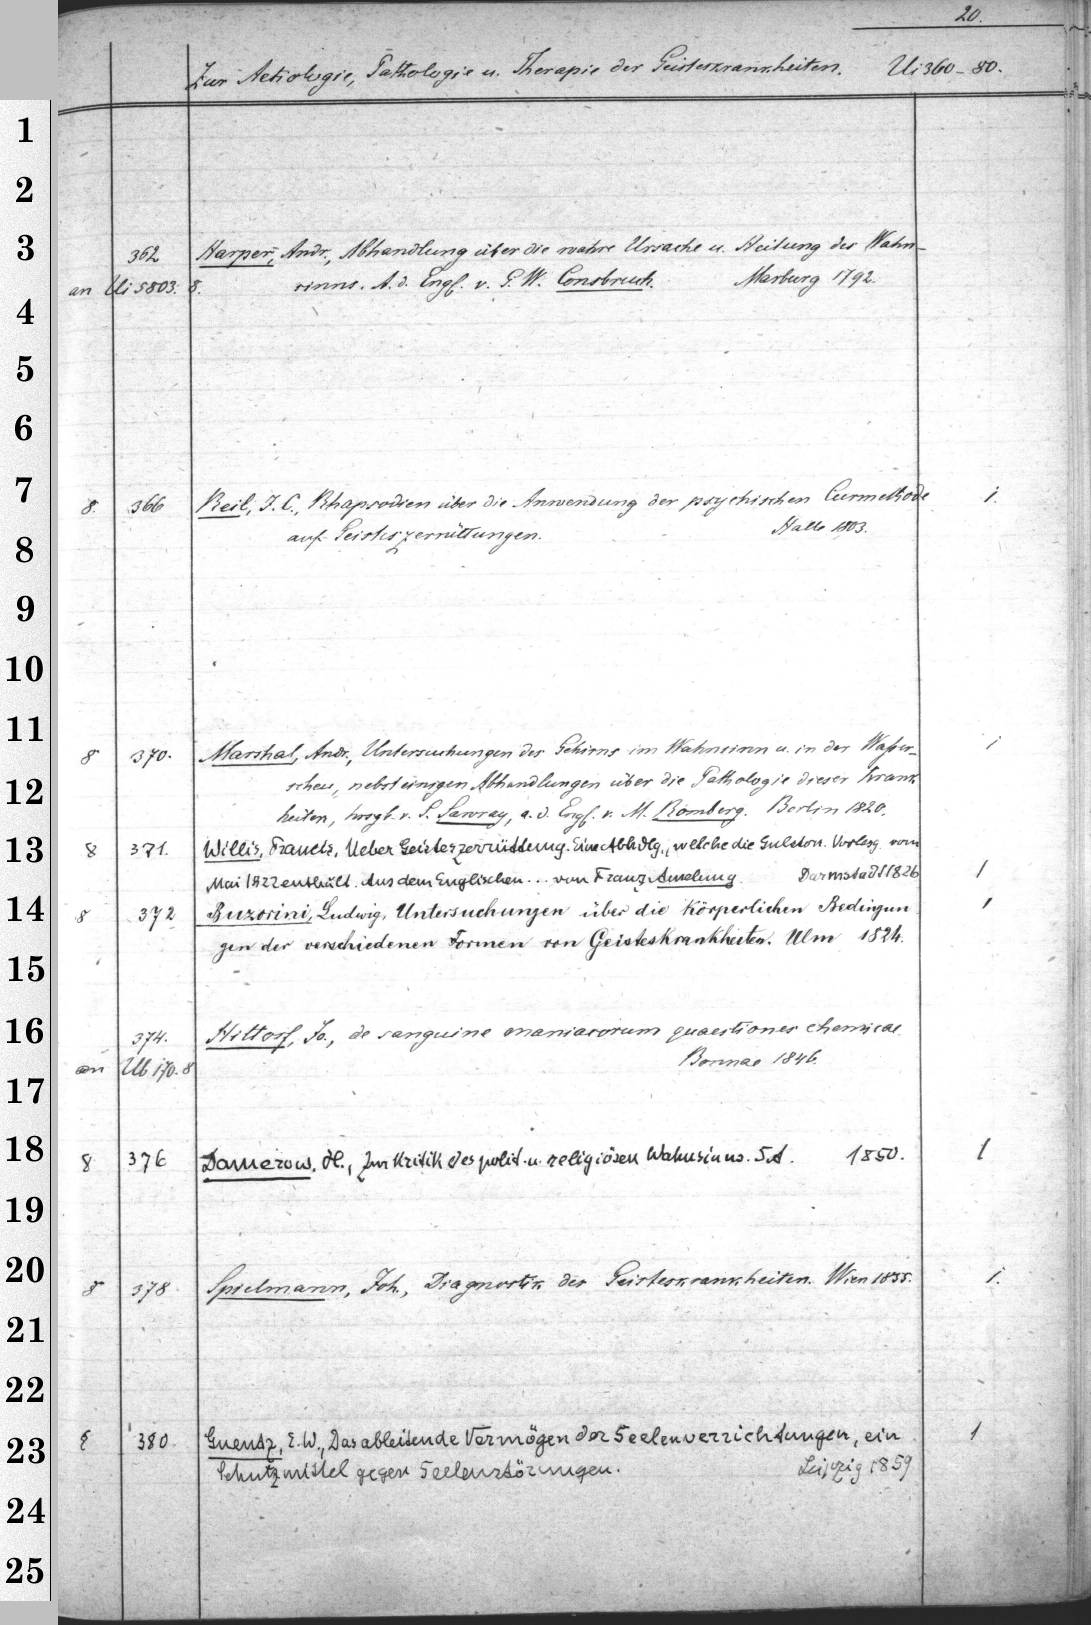 20.
Zur Aetiologie, Pathologie u. Therapie der Geisteskrankheiten. Ui 360-80.
1
2
3 362 Harper, Andr., Abhandlung über die wahre Ursache u. Heilung des Wahn-
an Ui 5803. 8. sinns. A. d. Engl. v. G. W. Consbruch. Marburg 1792.
4
5
6
7 8. 366 Reil, J. C., Rhapsodien über die Anwendung der psychischen Curmethode 1.
8 auf Geisteszerrüttungen. Halle 1803.
9
10
11 8 370. Marshal, Andr., Untersuchungen des Gehirns im Wahnsinn u. in der Wasser- 1
12 scheu, nebst einigen Abhandlungen über die Pathologie dieser Krank
heiten, hrsgb. v. S. Sawray, a. d. Engl. v. M. Romberg. Berlin 1820.
13 8 371. Willis, Francis, Ueber Geisteszerrüttung. Eine Abhdlg., welche die Gulston. Vorlesg. vom
Mai 1822 enthält. Aus dem Englischen... von Franz Amelung. Darmstadt 1826 1
14 8 372 Buzorini, Ludwig, Untersuchungen über die körperlichen Bedingun 1
gen der verschiedenen Formen von Geisteskrankheiten. Ulm 1824.
15
16 374. Hittorf, Jo., de sanguine maniacorum quaestiones chemicae.
an Ub 170. 8 Bonnae 1846.
17
18 8 376 Damerow, H., Zur Kritik des polit. u. religiösen Wahnsinns. S.A. 1850. 1
19
20 8 378 Spielmann, Joh., Diagnostik der Geisteskrankheiten. Wien 1855. 1.
21
22
23 8 380. Guentz, E. W., Das ableitende Vermögen der Seelenverrichtungen, ein 1
Schutzmittel gegen Seelenstörungen. Leipzig 1859
24
25